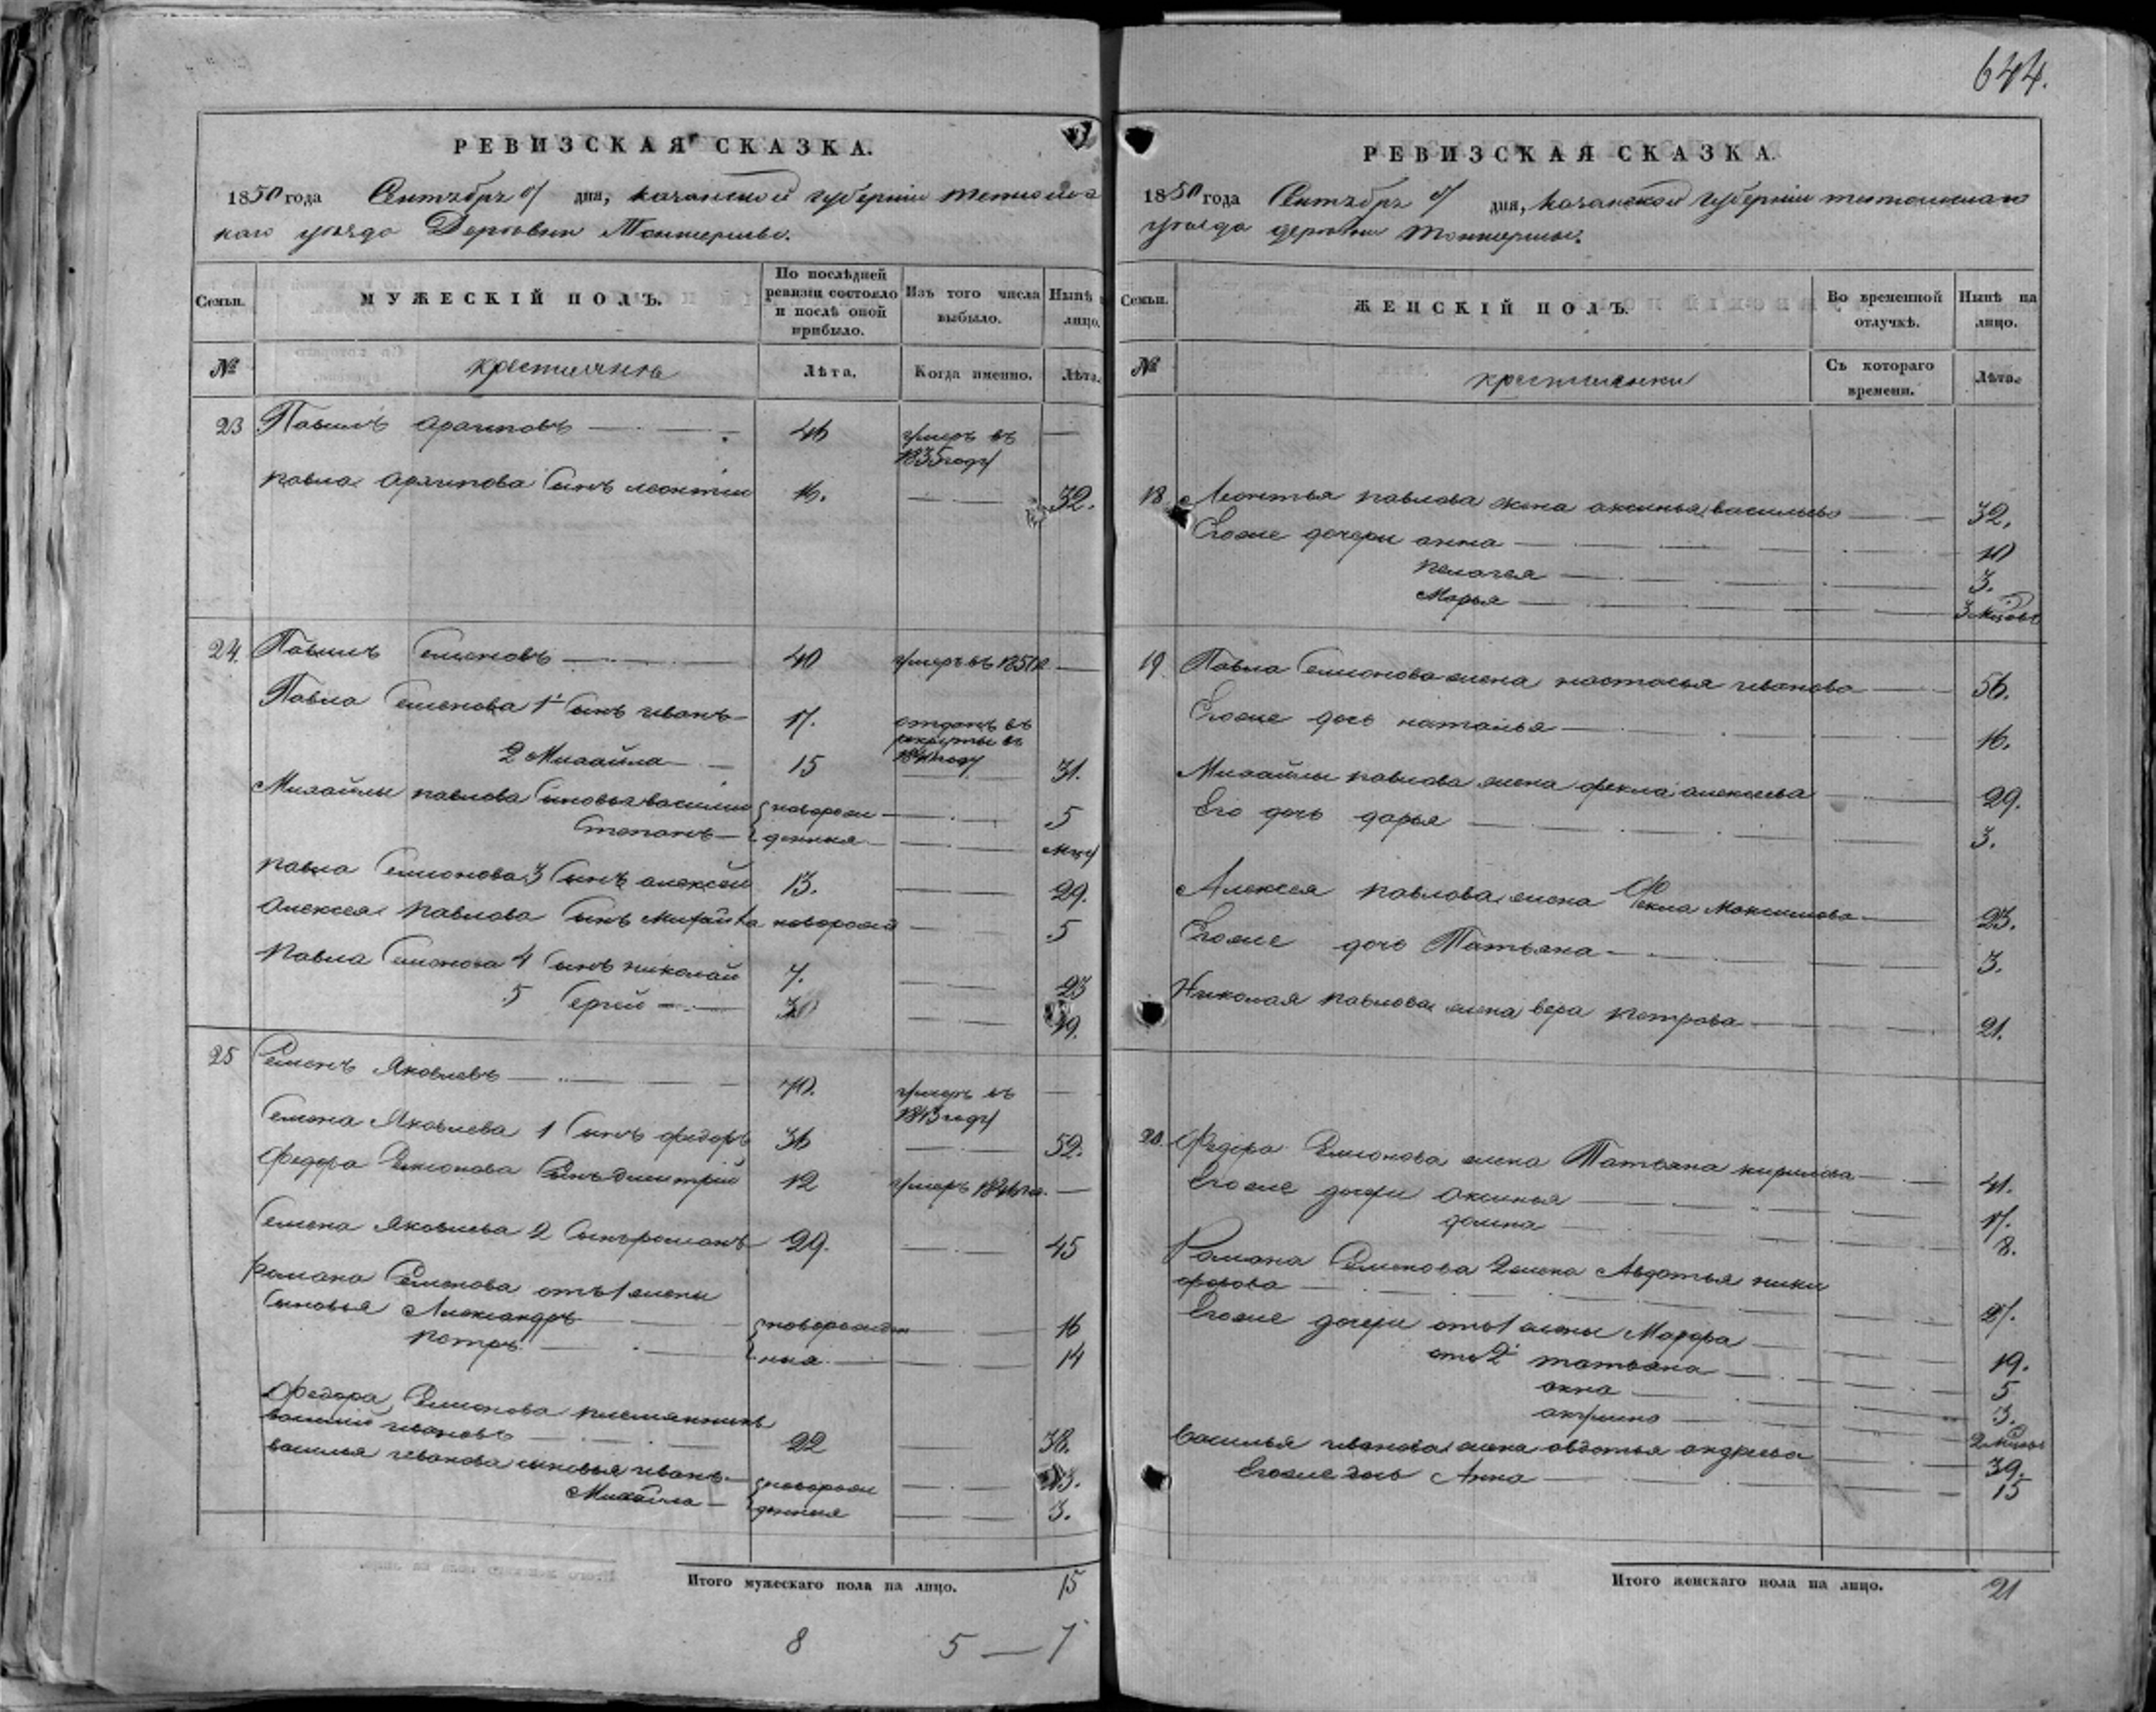 644.
РЕВИЗСКАЯ СКАЗКА.
1850 года Сентябръ дня, казанской губерніи тетюшс
каго уезда Деревни
№ Семьи.
МУЖЕСКІЙ ПОЛЪ.
По послѣдней ревизіи состояло и послѣ оной прибыло.
Изъ того числа выбыло.
Нынѣ на лицо.
№ крестиянъ Лѣта. Когда именно. Лѣта.
23 Павилъ архиповъ 46 умеръ въ —
1835 году
павла архипова Сынъ леонтии 16. — 32.
24. Павилъ Семионовъ 40 умеръ въ 1850 г —
Павла Семионова 1й Сынъ иванъ 17. отданъ въ
рекруты въ
1841 году
2 Михайла 15 — 31.
Михайлы павлова Сыновья василии новорож — 5
Степанъ денныя — мцу
павла Семионова 3 Сынъ алексей 13. — 29.
Алексея павлова Сынъ Михайла новорожд — 5
Павла Семионова 4 Сынъ николай 7. — 23
5 Сергей — 19.
25 Семенъ Яковлевъ 70. умеръ въ —
1843 году
Семиона Яковлева 1 Сынъ федоръ 36 — 52.
Федора Семионова Сынъ дмитрий 12 умеръ 1846 го. —
Семиона Яковлева 2 Сынъ романъ 29. — 45
Романа Семионова отъ 1 жены
Сыновья Александръ новорожден — 16
петръ ныя — 14
Федора Семионова племянникъ
василий ивановъ 22 — 38.
василья иванова сыновья иванъ новорож — 13.
Михайла денныя — 3.
Итого мужескаго пола на лицо. 15
8 5 — 7
РЕВИЗСКАЯ СКАЗКА.
1850 года Сентябръ дня, казанской губерніи тетюшскаго
уезда деревни
Семьи.
ЖЕНСКІЙ ПОЛЪ.
Во временной отлучкѣ.
Нынѣ на лицо.
№ крестиянки Съ котораго времени. Лѣта.
18 Леонтья павлова жена аксинья васильева 32.
Егоже дочери анна 10
пелагея 3.
Марья 3 мцовъ
19 Павла Семионова жена настасья иванова 56.
Егоже дочь наталья 16.
Михайлы павлова жена фекла алексеева 29.
Его дочь дарья 3.
Алексея павлова жена Фекла Максимова 23.
Егоже дочь Татьяна 3.
Николая павлова жена вера петрова 21.
20. Федора Семионова жена Татьяна кирилова 41.
Егоже дочери аксинья 17.
домна 8.
Романа Семионова 2 жена Авдотья ники
форова 27.
Егоже дочери отъ 1 жены Марфа 19.
отъ 2й татьяна 5
анна 3.
акулина 2 мцовъ
Василья иванова жена авдотья андреева 39.
Егоже дочь Анна 15
Итого женскаго пола на лицо. 21